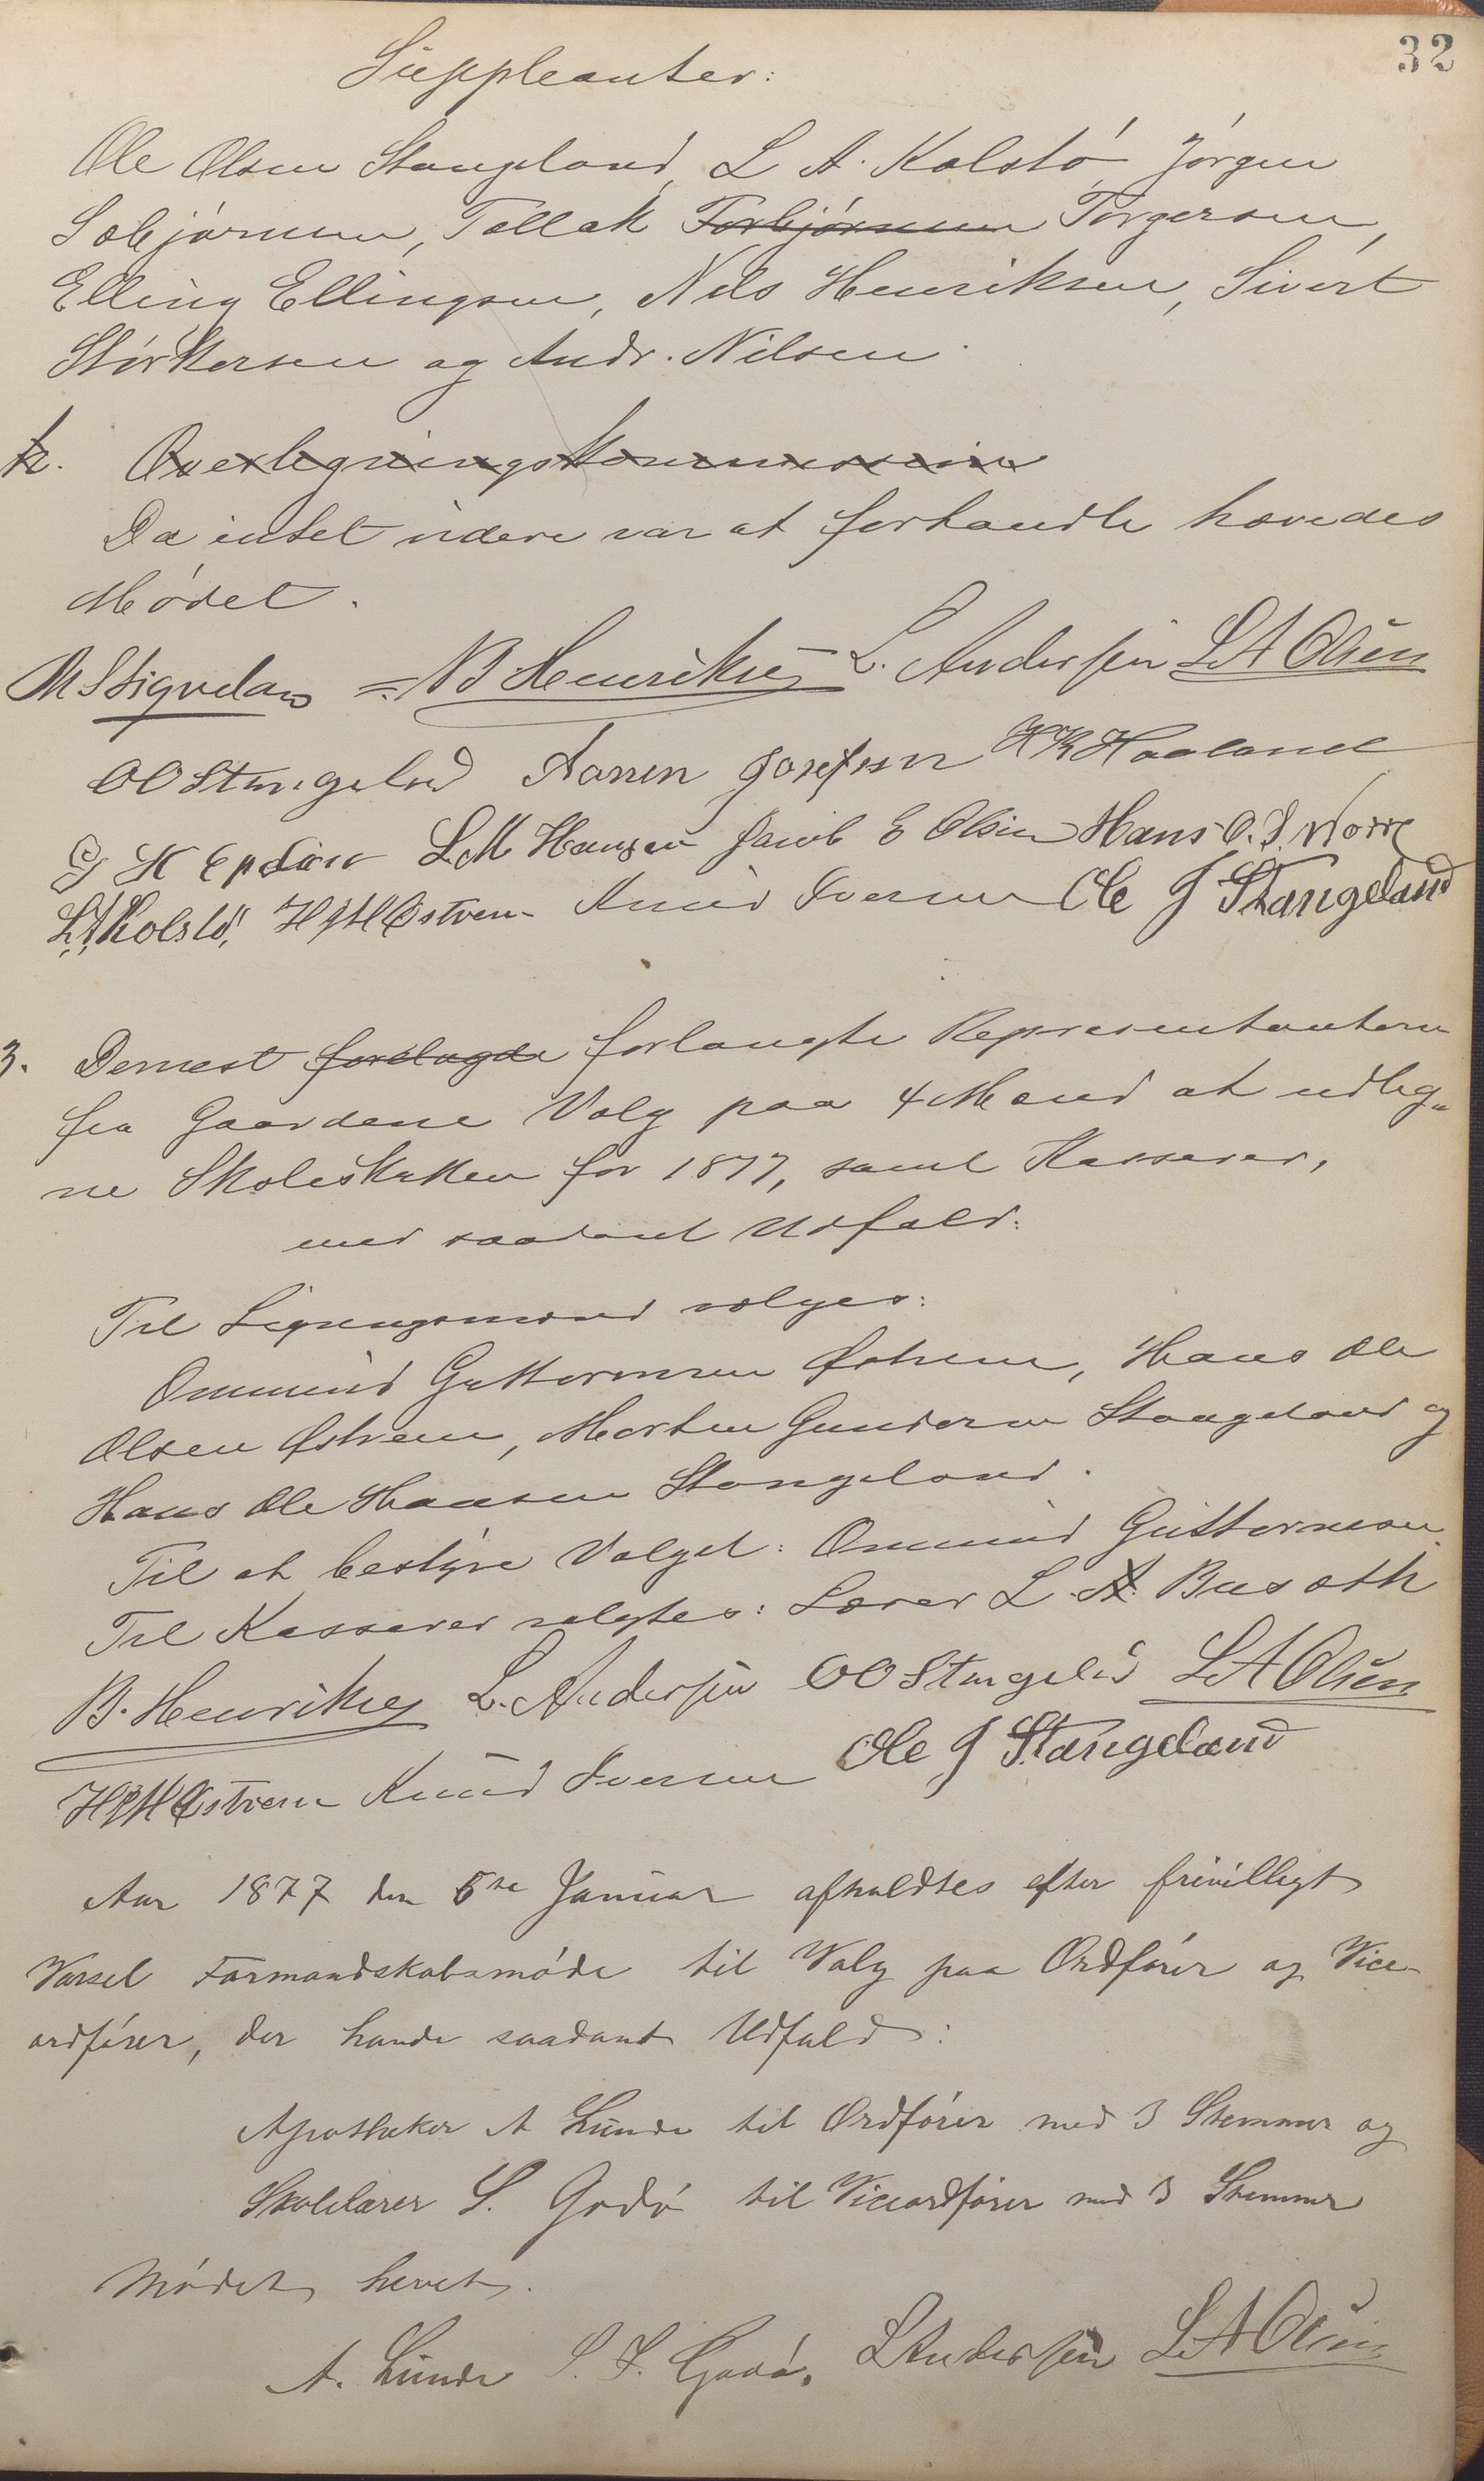 32
Suppleanter:
Ole Olsen Stangeland, L A. Kolstó, Jórgen
Sebjórnsen, Tollak Torbjórnsen Torgersen,
Elling Ellingsen, Nils Henriksen, Sivert
Stórkersen og Andr. Nilsen.
k. Overlegningskommission
Da intet videre var at forhandle hævedes
Módet.
B Henriksen L. Andersen L A Olsen
O O Stangeland Aanen Josefsen H K Haaland
L. M Hansen Jacob E Olsen Hans O. S. Norre
L. A. Kolstó, H J M Østrem Knud Iversen Ole J Stangeland
3. Dernest forelagde forlangte Representantern
fra Gaardene Valg paa 4 Mænd at udlig-
ne Skoleskatten for 1877, samt Kasserer,
med saadant Udfald:
Til Ligningsmænd valges:
Ommund Guttormsen Østrem, Hans Ole
Olsen Østrem, Morten Gundersen Stangeland og
Hans Ole Hansen Stangeland.
Til at bestyre Valget: Ommund Guttormsen.
Til Kasserer valgtes: Lærer L. A. Busæth
B. Henriksen L. Andersen O O Stangeland L A Olsen
H J M Østrem Knud Iversen Ole J Stangeland
Aar 1877 den 5te Januar afholdtes efter frivilligt
Varsel Formandskabsmóde til Valg paa Ordfórer og Vice-
ordfórer, der havde saadant Udfald:
Apotheker A Lunde til Ordfórer med 3 Stemmer og
Skolelærer S. Godó til Viceordfórer med 3 Stemmer
Módet hevet.
A. Lunde S. S. Godó. L Andersen L A Olsen